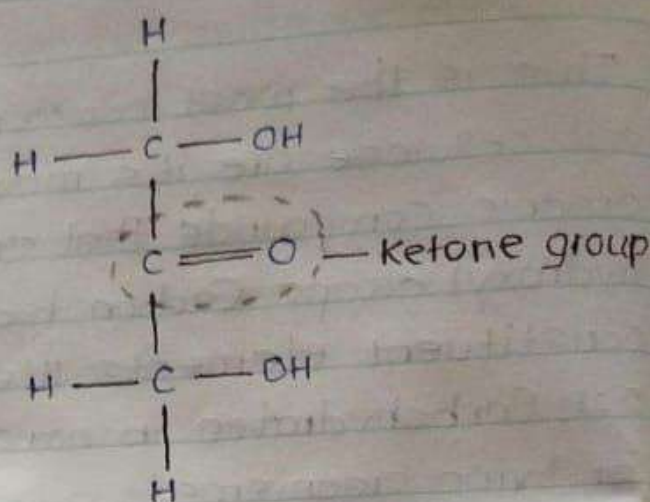 H
H — C — OH
C = O — Ketone group
H — C — OH
H